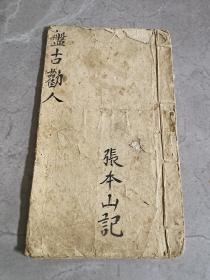 盤古勸人
張本山記